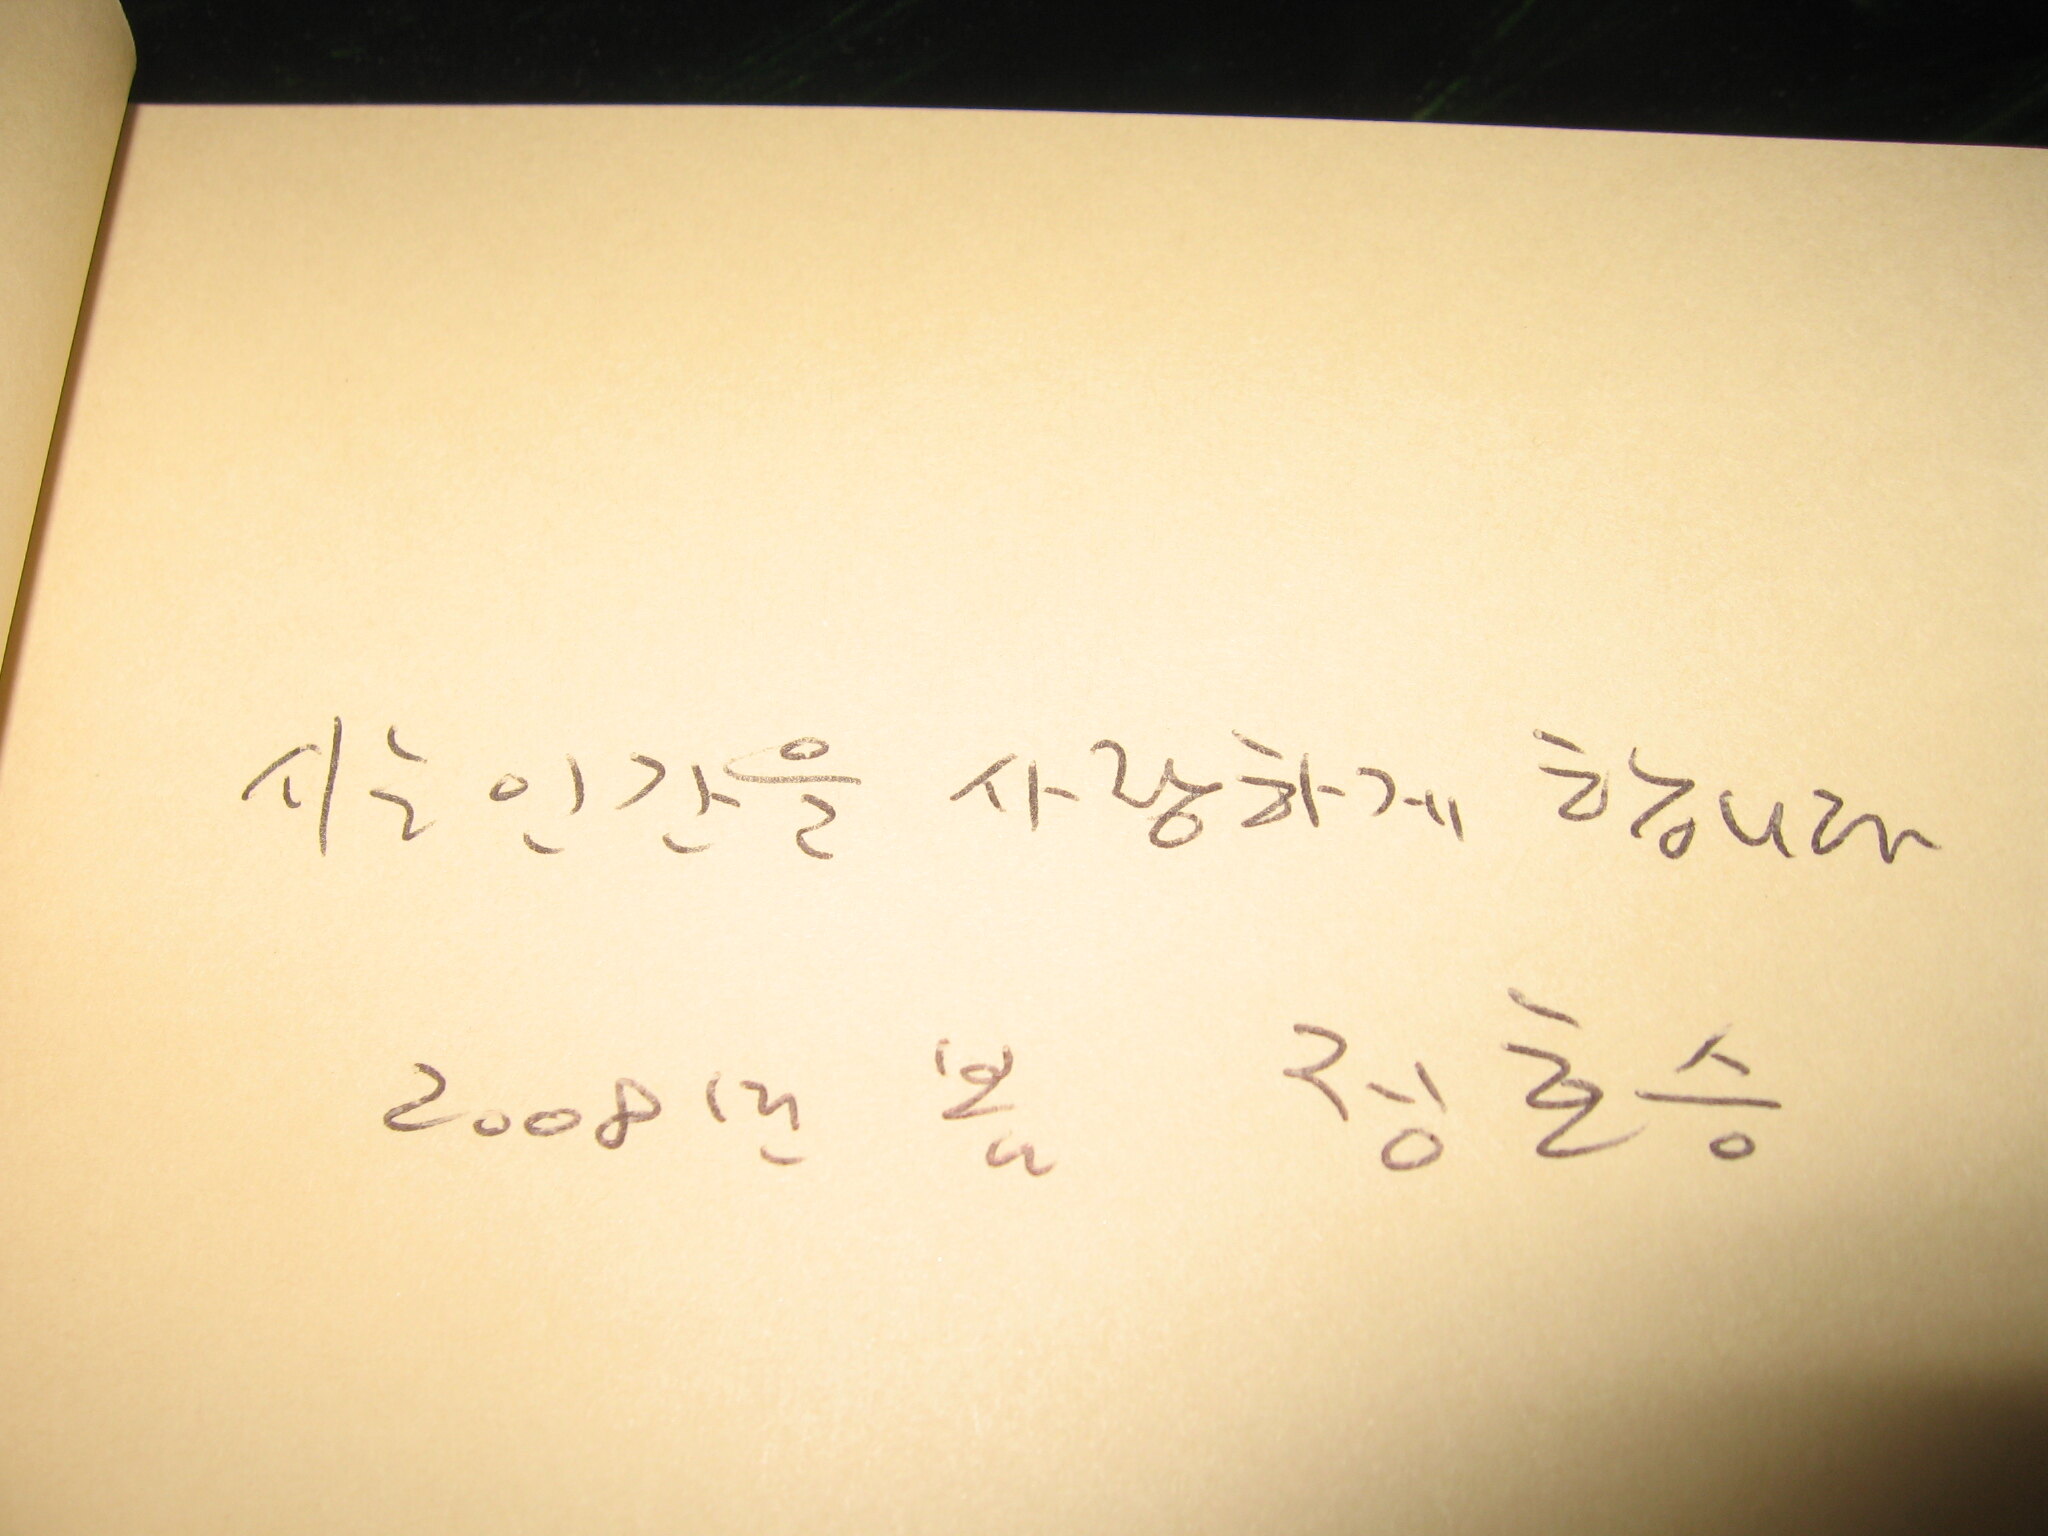 시는 인간을 사랑하게 합니다
2008년 봄 정호승